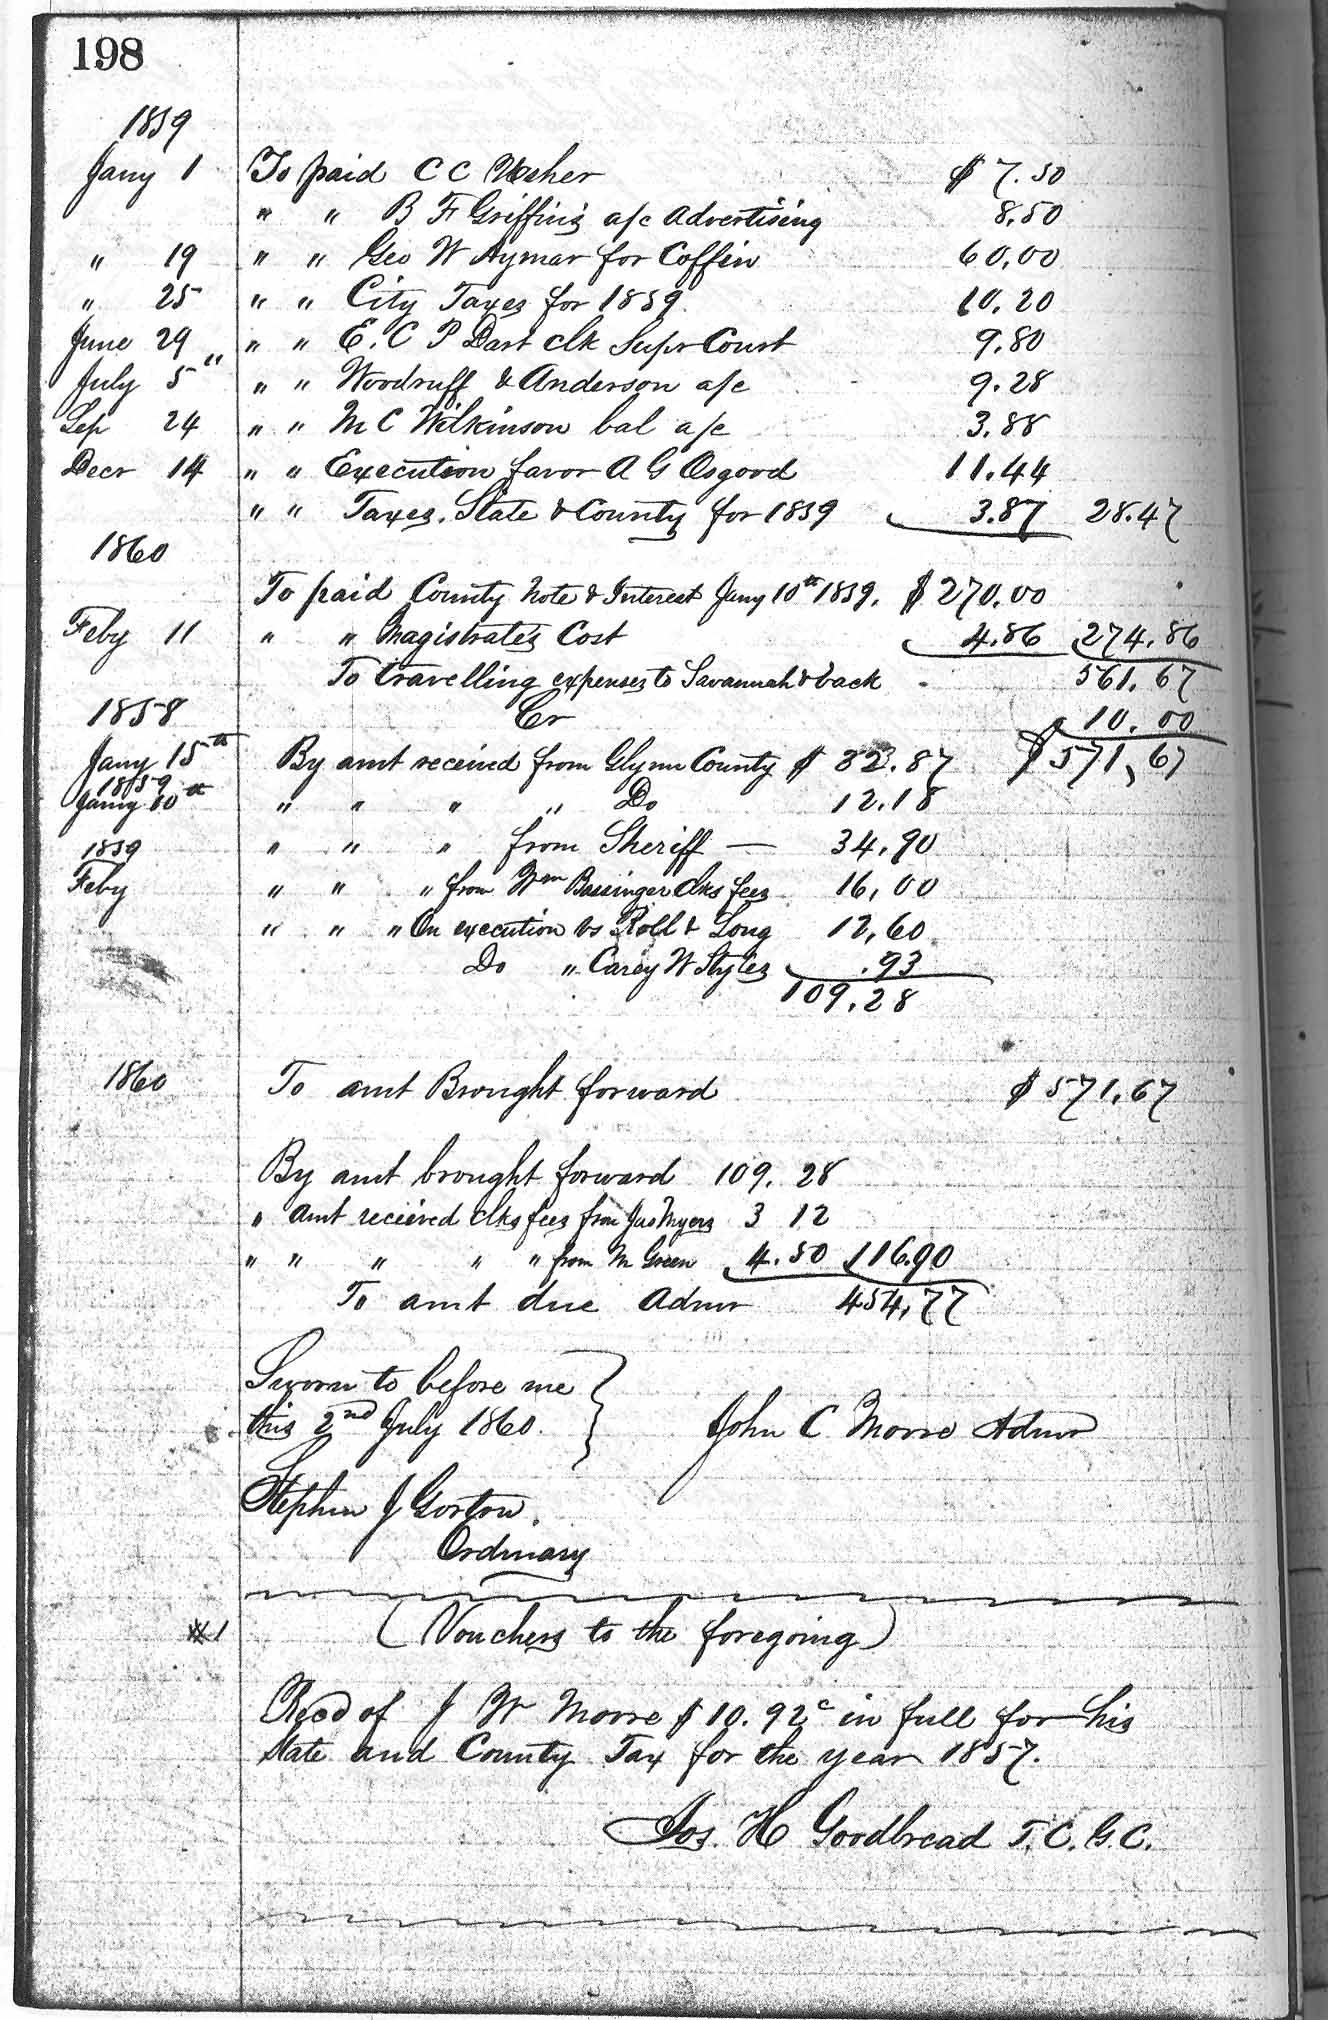 198
1859
Jany 1 To paid C C Usher $ 7.50
" " B F Griffin's a/c Advertising 8.50
" 19 " " Geo W Aymar for Coffin 60.00
" 25 " " City Taxes for 1859 10.20
June 29 " " E. C P Dart clk Supr Court 9.80
July 5" " " Woodruff & Anderson a/c 9.28
Sep 24 " " M C Wilkinson bal a/c 3.88
Decr 14 " " Execution favor A G Osgood 11.44
" " Taxes. State & County for 1859 3.87 28.47
1860
To paid County Note & Interest Jany 10th 1859. $ 270.00
Feby 11 " " Magistrates Cost 4.86 274.86
To travelling expenses to Savannah & back 561.67
1858 Cr 10.00
Jany 15th By amt received from Glynn County $ 32.87 $ 571,67
1859
Jany 10th " " " " Do 12.18
1859 " " " from Sheriff — 34.90
Feby " " " from Wm Bassinger clks fees 16,00
" " " On execution vs Roll & Long 12,60
Do " Carey W Styles .93
109.28
1860 To amt Brought forward $ 571.67
By amt brought forward 109. 28
" Amt recieved clks fees from Jas Myers 3 12
" " " " " from M Green 4.50 116.90
To amt due Admr 454,77
Sworn to before me
this 2nd July 1860. John C Moore Admr
Stephen J Gorton.
Ordinary
#1 (Vouchers to the foregoing)
Recd of J W Moore $ 10.92c in full for his
State and County Tax for the year 1857.
Jos. H Goodbread T.C.G.C.